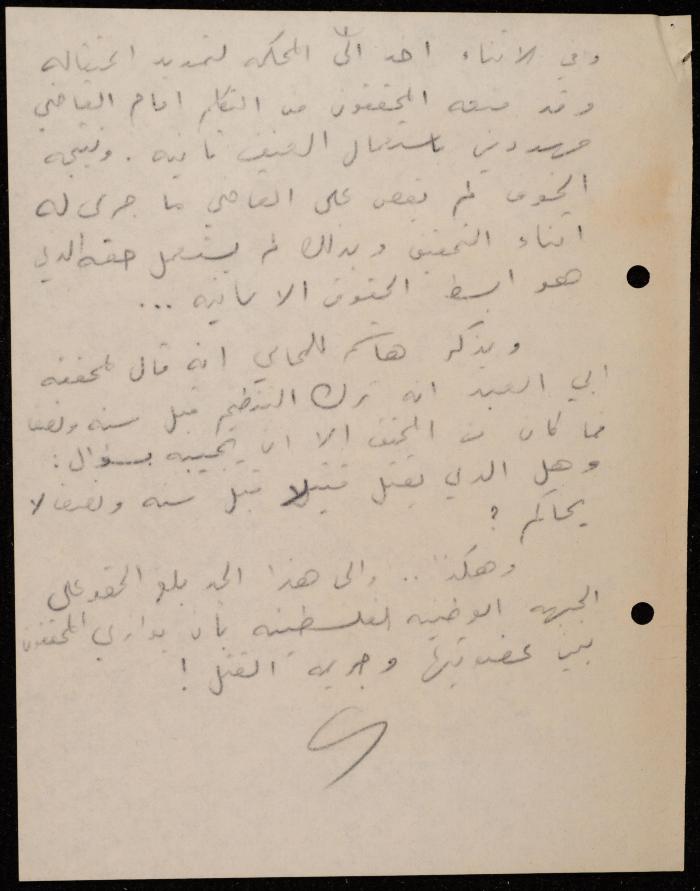 وفي الاثناء اخذ الى المحكمه لتمديد اعتقاله
وقد منعه المحققون من التكلم امام القاضي
مهددين باستعمال العنف ثانيه . ونتيجه
الخوف لم يقص على القاضي ما جرى له
اثناء التحقيق وبذلك لم يستعمل حقه الذي
هو ابسط الحقوق الانسانيه ...
ويذكر هاشم للمحامي انه قال لمحققه
ابي العبد انه ترك التنظيم قبل سنه ونصف
فما كان من المحقق الا ان يجيبه بسؤال :
وهل الذي يقتل قتيلا قبل سنه ونصف لا
يحاكم ؟
وهكذا .. والى هذا الحد بلغ الحقد على
الجبهه الوطنيه الفلسطينيه بان يوازي المحققون
بين عضويتها وجريمه القتل !